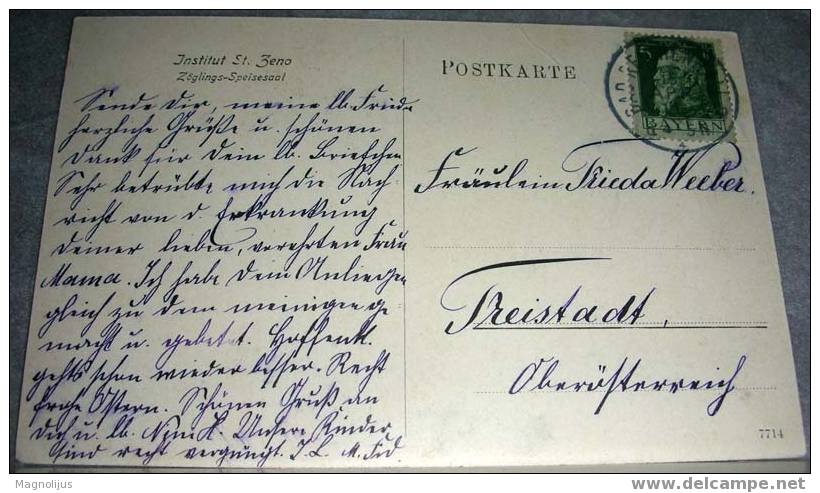 Institut St. Zeno
Zöglings-Speisesaal
Sende Dir, meine lb. Frieda
herzliche Grüße u. schönen
Dank für Dein lb. Briefchen
Sehr betrübte mich die Nach-
richt von d. Erkrankung
Deiner lieben, verehrten Frau
Mama. Ich habe Dein Anliegen
gleich zu dem meinigen ge-
macht u. gebetet. Hoffentl.
gehts schon wieder besser. Recht
frohe Ostern. Schönen Gruß an
Dich u. lb. Unsere Kinder
sind recht vergnügt.
POSTKARTE
5
BAYERN
Fräulein Frieda Weeber.
Freistadt,
Oberösterreich
7714
Magnolijus
delcampe.net